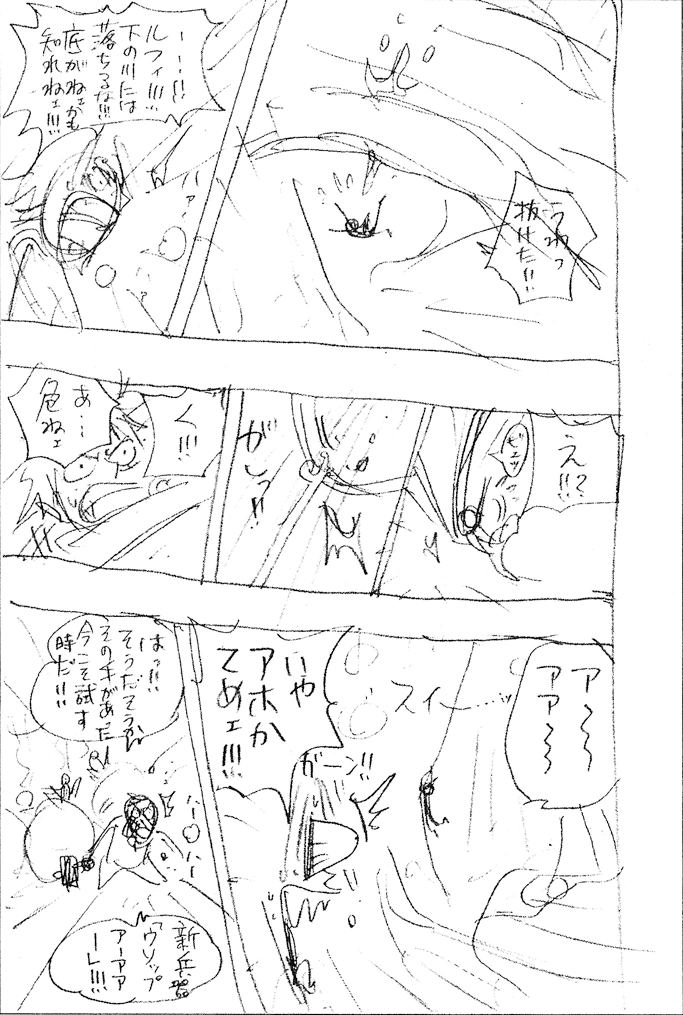 うわっ
抜けた!!
ーー!!!
ルフィ!!!
下の川には
落ちるな!!!
底がねェかも
知れねェ!!!
ハァ
え!!?
ビヨッ
がしっ!!
く!!!
あ…
危ねェ
ア〜〜
アア〜〜
スイーー……ッ
いや
アホか
てめェ!!!
ガーン!!
はっ!!!
そうだそうかね
その手があった!
今こそ試す
時だ!!!
ハーハー
新兵器
「ウソップ
アーアア
ーレ!!!